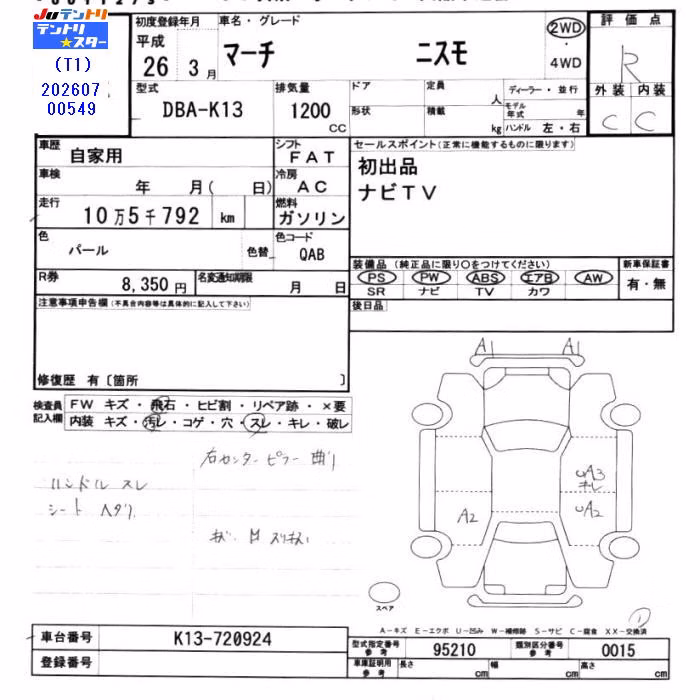 JU テントリ
テントリ★スター
(T1)
202607
00549
初度登録年月
平成
26 年 3 月
車名・グレード
マーチ ニスモ
2WD
・
4WD
評価点
R
外装 内装
C C
型式
DBA-K13
排気量
1200
CC
ドア
形状
定員
人
積載
kg
ディーラー・並行
モデル年式 年
ハンドル 左・右
車歴
自家用
シフト
FAT
車検
年 月( 日)
冷房
AC
走行
10万5千792 km
燃料
ガソリン
色
パール
色替
色コード
QAB
R券
8,350円
名変通知期限
月 日
セールスポイント(正常に機能するものに限ります)
初出品
ナビTV
装備品(純正品に限り○をつけてください)
PS PW ABS エアB AW
SR ナビ TV カワ
新車保証書
有・無
後日品
注意事項申告欄(不具合内容等は具体的に記入して下さい)
修復歴 有〔箇所 〕
検査員記入欄
FW キズ・飛石・ヒビ割・リペア跡・×要
内装 キズ・汚レ・コゲ・穴・スレ・キレ・破レ
右センターピラー曲り
ハンドル スレ
シート ヘタリ
A1 A1
A2
UA3
キレ
UA2
スペア
1
A−キズ E−エクボ U−凹み W−補修跡 S−サビ C−腐食 XX−交換済
車台番号
K13-720924
登録番号
型式指定番号 参考
95210
類別区分番号 参考
0015
車庫証明用 参考
長さ cm 幅 cm 高さ cm